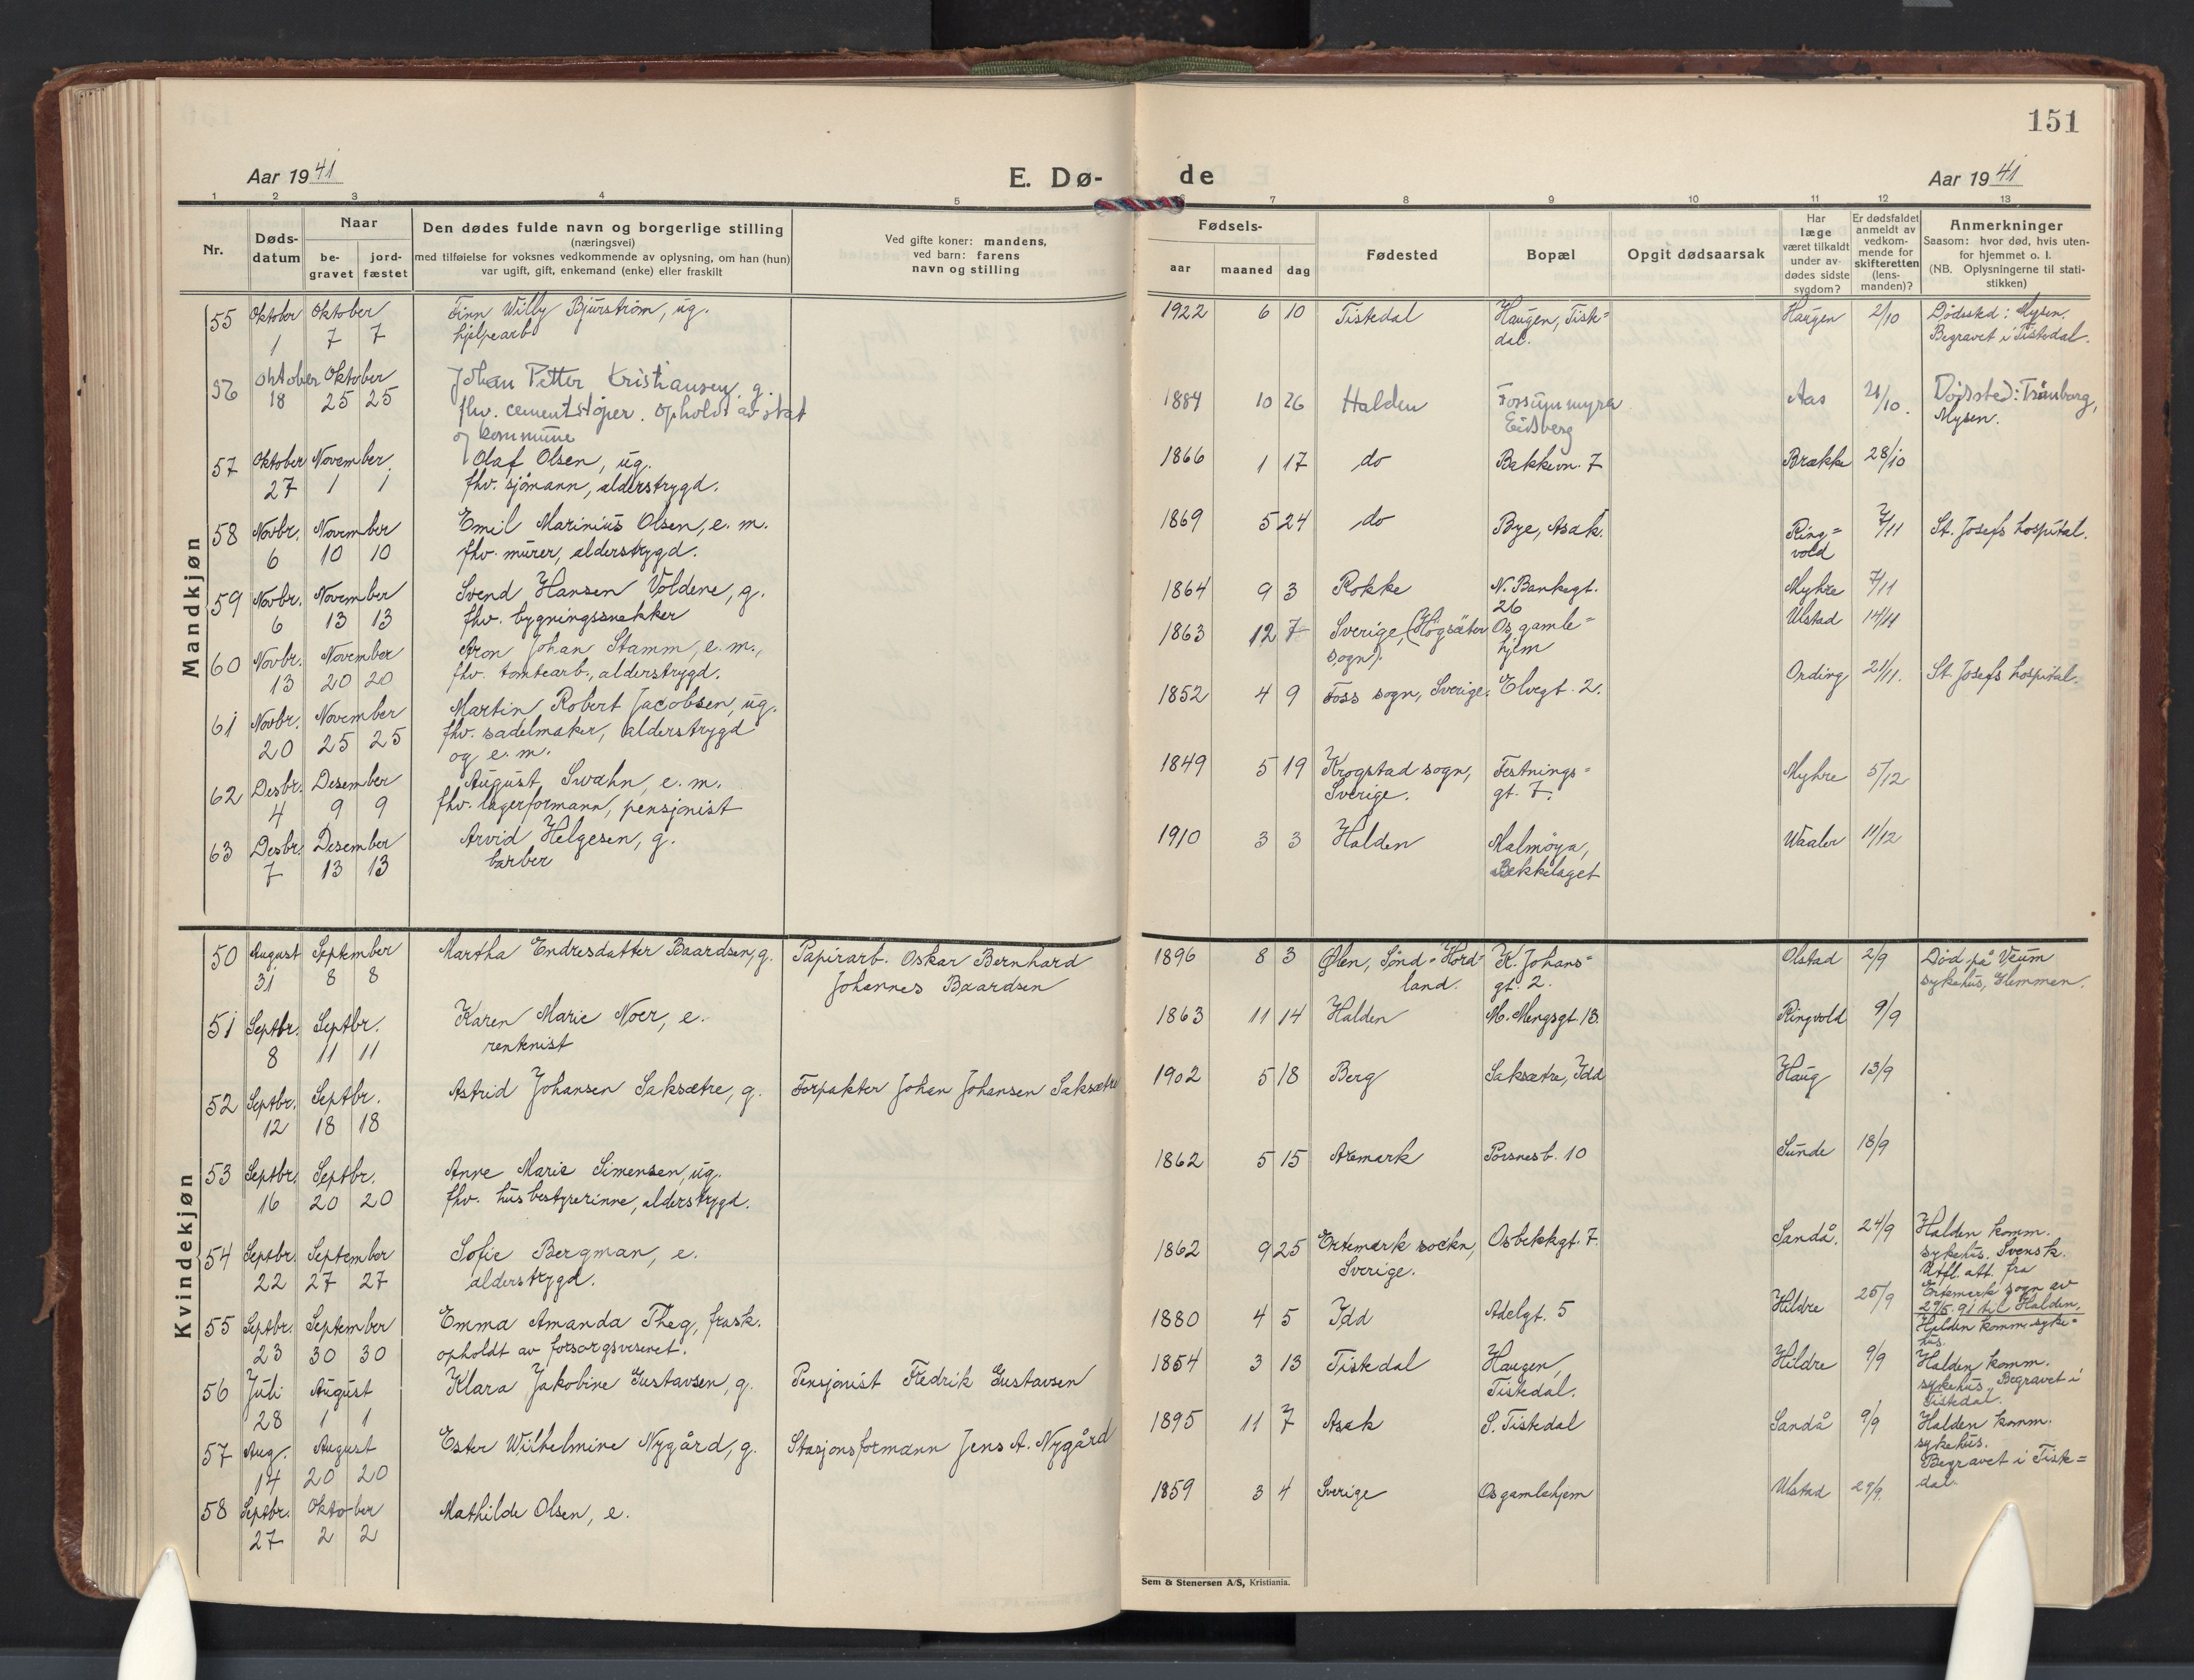 151
Aar 1941
E. Dø-
de
Aar 1941
1 2 3 4 5
6 7 8 9 10 11 12 13
Nr.
Døds-
datum
Naar
be-
gravet
jord-
fæstet
Den dødes fulde navn og borgerlige stilling
(næringsvei)
med tilføielse for voksnes vedkommende av oplysning, om han (hun)
var ugift, gift, enkemand (enke) eller fraskilt
Ved gifte koner: mandens,
ved barn: farens
navn og stilling
Fødsels-
aar
maaned
dag
Fødested
Bopæl
Opgit dødsaarsak
Har
læge
været tilkaldt
under av-
dødes sidste
sygdom?
Er dødsfaldet
anmeldt av
vedkom-
mende for
skifteretten
(lens-
manden)?
Anmerkninger
Saasom: hvor død, hvis uten-
for hjemmet o. l.
(NB. Oplysningerne til stati-
stikken)
Mandkjøn
55 Oktober Oktober Finn Willy Bjurstrøm, ug. 1922 6 10 Tistedal Haugen, Tisk= Haugen 2/10 Dødssted: Mysen.
1 7 7 hjelpearb dal. Begravet i Tistedal.
56 Oktober Oktober Johan Petter Kristiansen, g. 1884 10 26 Halden Aas 21/10. Dødssted: Trømborg,
18 25 25 fhv. cementstøper. Opholdt av stat Eidsberg Mysen.
og kommune
57 Oktober November Olaf Olsen, ug. 1866 1 17 do Bakkevn. 7 Brække 28/10
27 1 1 fhv. sjømann, alderstrygd.
58 Novbr. November Emil Marinius Olsen, e. m. 1869 5 24 do Bye, Asak. Ring= 7/11 St. Josefs hospital.
6 10 10 fhv. murer, alderstrygd. vold
59 Novbr. November Svend Hansen Voldene, g. 1864 9 3 Rokke N. Bankegt. Myhre 7/11
6 13 13 fhv. bygningssnekker 26
60 Novbr. November Aron Johan Stamm, e. m., 1863 12 7 Sverige, (Högsäter Os gamle= Ulstad 14/11
13 20 20 fhv. tomtearb., alderstrygd. sogn). hjem
61 Novbr. November Martin Robert Jacobsen, ug. 1852 4 9 Foss sogn, Sverige. Elvegt. 2. Ording 21/11. St. Josefs hospital.
20 25 25 fhv. sadelmaker, alderstrygd
og e. m.
62 Desbr. Desember August Swahn, e. m. 1849 5 19 Krogstad sogn, Festnings= Myhre 5/12
4 9 9 fhv. lagerformann, pensjonist Sverige. gt. 7.
63 Desbr. Desember Arvid Helgesen, g. 1910 3 3 Halden Malmøya, Waaler 11/12
7 13 13 barber Bekkelaget
Kvindekjøn
50 August September Martha Endresdatter Baardsen, g. Papirarb. Oskar Bernhard 1896 8 3 Ølen, Sönd-Hord- K. Johans= Olstad 2/9 Død på Veum
31 8 8 Johannes Baardsen land. gt. 2. sykehus, Glemmen.
51 Septbr. Septbr. Karen Marie Noer, e. 1863 11 14 Halden M. Mengsgt. 13. Ringvold 9/9
8 11 11 rentenist
52 Septbr. Septbr. Astrid Johansen Saksætre, g. Forpakter Johan Johansen Saksætre 1902 5 18 Berg Saksætre, Idd Haug 13/9
12 18 18
53 Septbr. Septbr. Anne Marie Simensen, ug. 1862 5 15 Aremark Porsnesb. 10 Sunde 18/9
16 20 20 fhv. husbestyrerinne, alderstrygd.
54 Septbr. September Sofie Bergman, e. 1862 9 25 Ertemark sockn, Osbekkgt. 7. Sandå. 24/9 Halden komm.
22 27 27 alderstrygd. Sverige. sykehus. Svensk.
Utfl. att. fra
Ertemark sogn av
29/5-91 til Halden.
55 Septbr. September Emma Amanda Theg, frask. 1880 4 5 Idd Adelgt. 5 Hildre 25/9 Halden komm. syke=
23 30 30 opholdt av forsorgsvesenet. hus.
56 Juli August Klara Jakobine Gustavsen, g. Pensjonist Fredrik Gustavsen 1854 3 13 Tistedal Haugen, Hildre 9/9 Halden komm.
28 1 1 Tistedal. sykehus. Begravet i
Tistedal.
57 Aug. August Ester Wilhelmine Nygård, g. Stasjonsformann Jens A. Nygård 1895 11 7 Asak S. Tistedal Sandå 9/9 Halden komm.
14 20 20 sykehus.
Begravet i Tisk=
dal.
58 Septbr. Oktober Mathilde Olsen, e. 1859 3 4 Sverige Os gamlehjem Ulstad 29/9.
27 2 2
Sem & Stenersen A/S, Kristiania.